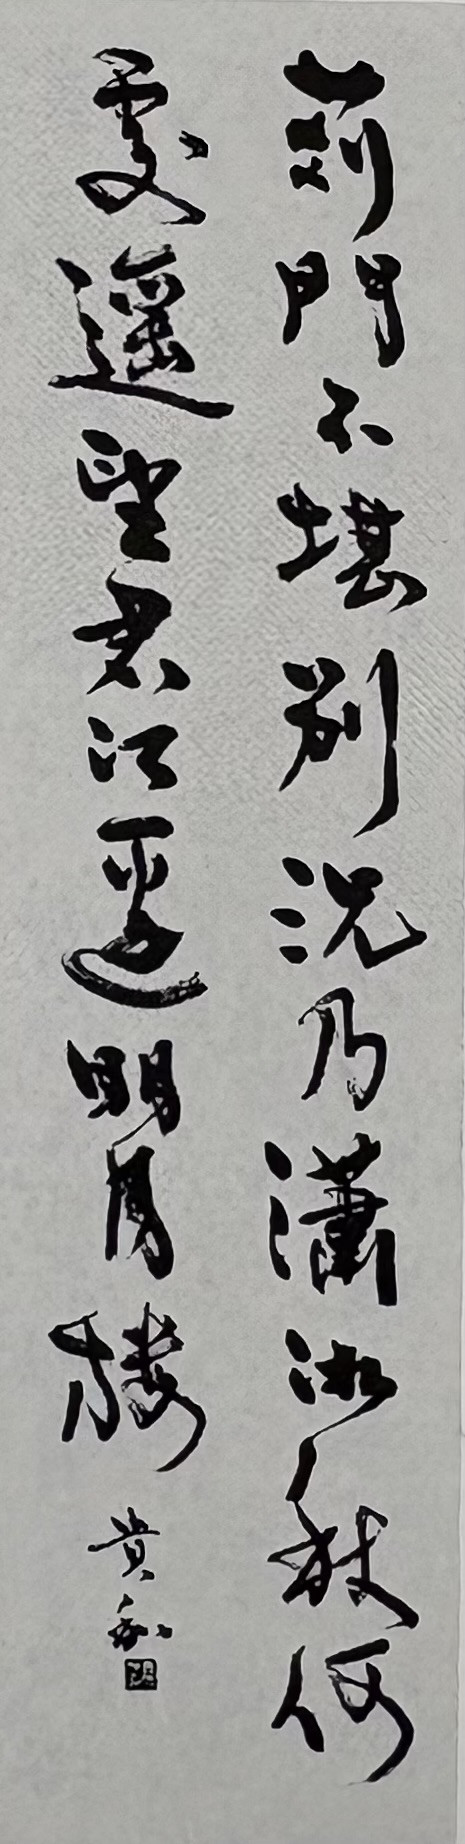 荊門不堪別況乃瀟湘秋何
處遥望君江邊明月樓
貴和